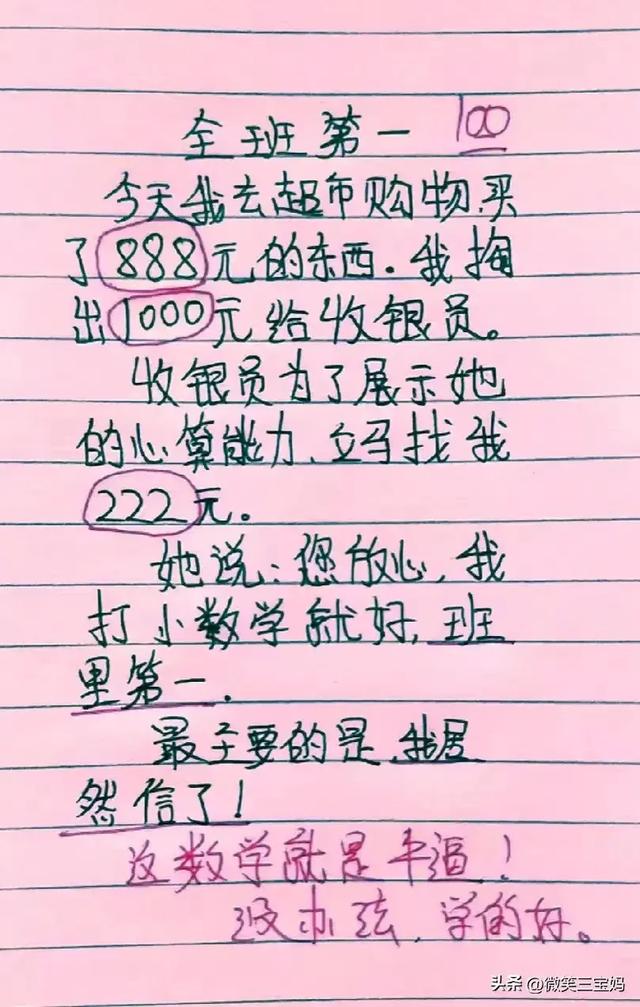 全班第一 100
今天我去超市购物,买
了888元的东西.我掏
出1000元给收银员。
收银员为了展示她
的心算能力,立马找我
222元。
她说:您放心,我
打小数学就好,班
里第一.
最主要的是,我居
然信了!
这数学就是牛逼!
没办法,学的好。
头条 @微笑三宝妈